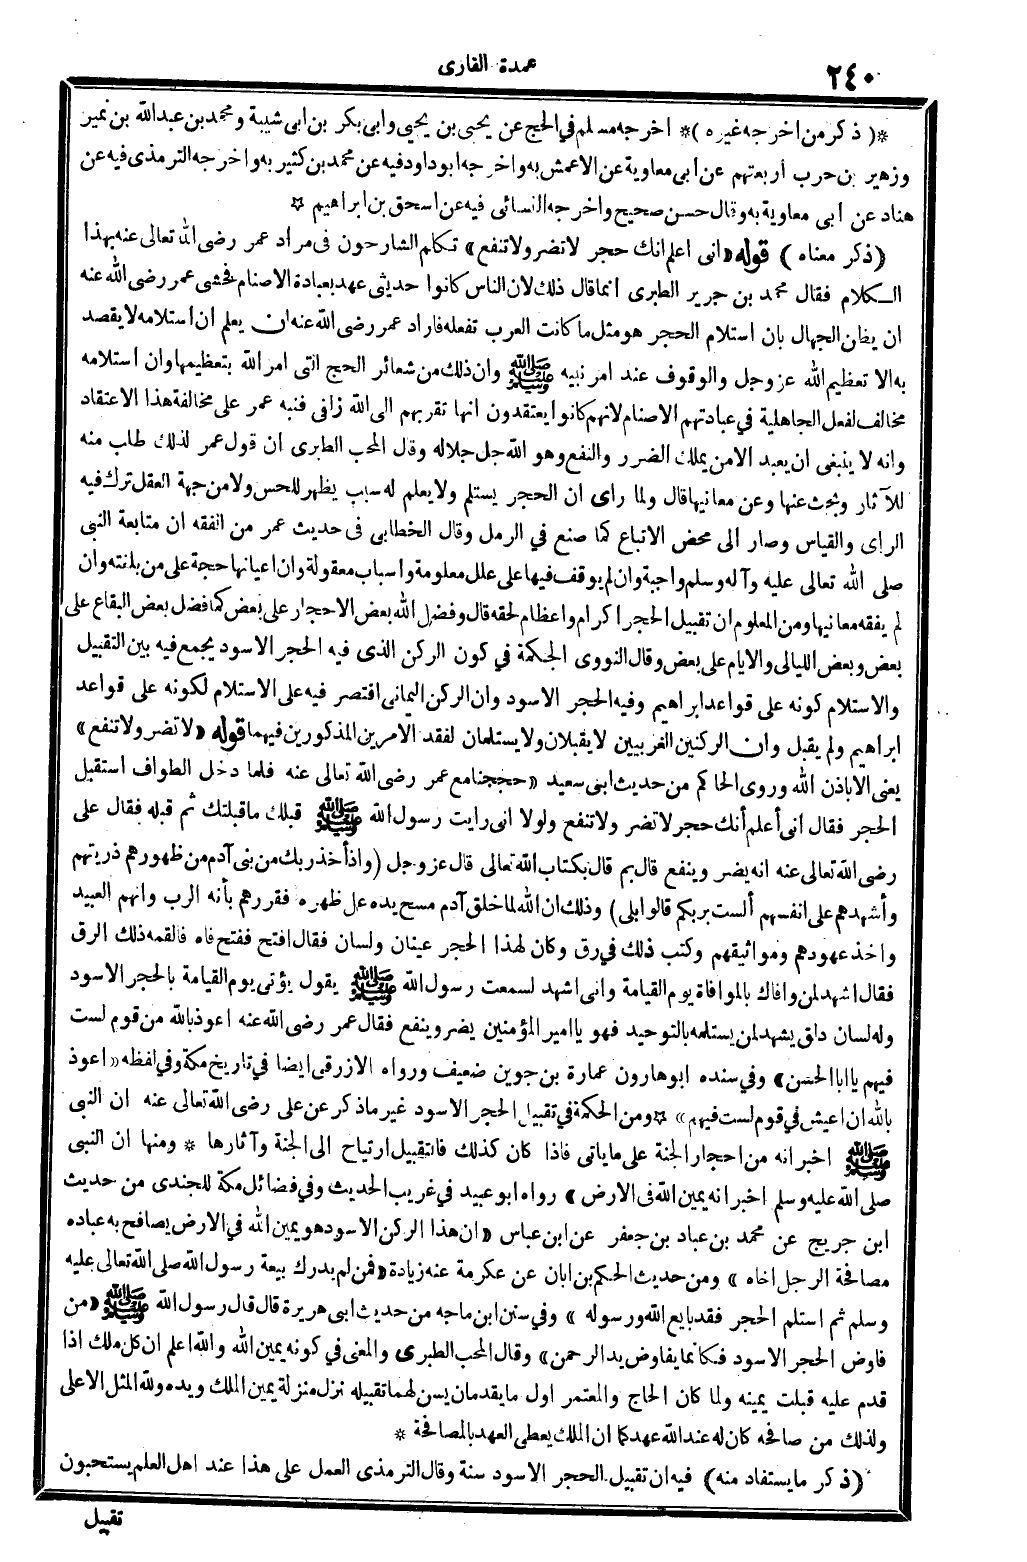 ٢٤٠
عمدة القارى
*( ذكر من اخرجه غيره )* اخرجه مسلم في الحج عن يحيى بن يحيى وابى بكر بن ابى شيبة ومحمد بن عبدالله بن نمير
وزهير بن حرب أربعتهم عن ابى معاوية عن الاعمش به واخرجه ابوداود فيه عن محمد بن كثير به واخرجه الترمذى فيه عن
هناد عن ابى معاوية به وقال حسن صحيح واخرجه النسائى فيه عن اسحق بن ابراهيم ☆
(ذكر معناه) قوله «انى اعلم انك حجر لاتضر ولا تنفع» تكلم الشارحون فى مراد عمر رضى الله تعالى عنه بهذا
الكلام فقال محمد بن جرير الطبرى انما قال ذلك لان الناس كانوا حديثى عهد بعبادة الاصنام فخشى عمر رضى الله عنه
ان يظن الجهال بان استلام الحجر هو مثل ما كانت العرب تفعله فاراد عمر رضى الله عنه ان يعلم ان استلامه لا يقصد
به الا تعظيم الله عز وجل والوقوف عند امر نبيه ﷺ وان ذلك من شعائر الحج التى امر الله بتعظيمها وان استلامه
مخالف لفعل الجاهلية في عبادتهم الاصنام لانهم كانوا يعتقدون انها تقربهم الى الله زلفى فنبه عمر على مخالفة هذا الاعتقاد
وانه لا ينبغى ان يعبد الا من يملك الضرر والنفع وهو الله جل جلاله وقال المحب الطبرى ان قول عمر لذلك طلب منه
للآثار وبحث عنها وعن معانيها قال ولما راى ان الحجر يستلم ولا يعلم له سبب يظهر للحس ولا من جهة العقل ترك فيه
الراى والقياس وصار الى محض الاتباع كما صنع في الرمل وقال الخطابى فى حديث عمر من الفقه ان متابعة النبى
صلى الله تعالى عليه وآله وسلم واجبة وان لم يوقف فيها على علل معلومة واسباب معقولة وان اعيانها حجة على من بلغته وان
لم يفقه معانيها ومن المعلوم ان تقبيل الحجر اكرام واعظام لحقه قال وفضل الله بعض الاحجار على بعض كما فضل بعض البقاع على
بعض وبعض الليالى والايام على بعض وقال النووى الحكمة في كون الركن الذى فيه الحجر الاسود يجمع فيه بين التقبيل
والاستلام كونه على قواعد ابراهيم وفيه الحجر الاسود وان الركن اليمانى اقتصر فيه على الاستلام لكونه على قواعد
ابراهيم ولم يقبل وان الركنين الغربيين لا يقبلان ولا يستلمان لفقد الامرين المذكورين فيهما قوله «لا تضر ولا تنفع»
يعنى الا باذن الله وروى الحاكم من حديث ابى سعيد «حججنا مع عمر رضى الله تعالى عنه فلما دخل الطواف استقبل
الحجر فقال انى أعلم أنك حجر لاتضر ولا تنفع ولولا انى رايت رسول الله ﷺ قبلك ما قبلتك ثم قبله فقال على
رضى الله تعالى عنه انه يضر وينفع قال بم قال بكتاب الله تعالى قال عز وجل (واذ أخذ ربك من بنى آدم من ظهورهم ذريتهم
وأشهدهم على انفسهم ألست بربكم قالوا بلى) وذلك ان الله لما خلق آدم مسح يده على ظهره فقررهم بأنه الرب وانهم العبيد
واخذ عهودهم ومواثيقهم وكتب ذلك في رق وكان لهذا الحجر عينان ولسان فقال افتح ففتح فاه فالقمه ذلك الرق
فقال اشهد لمن وافاك بالموافاة يوم القيامة وانى اشهد لسمعت رسول الله ﷺ يقول يؤتى يوم القيامة بالحجر الاسود
وله لسان دلق يشهد لمن يستلمه بالتوحيد فهو يا امير المؤمنين يضر وينفع فقال عمر رضى الله عنه اعوذ بالله من قوم لست
فيهم يا ابا الحسن» وفي سنده ابو هارون عمارة بن جوين ضعيف ورواه الازرقى ايضا في تاريخ مكة وفي لفظه «اعوذ
بالله ان اعيش في قوم لست فيهم» ☆ ومن الحكمة في تقبيل الحجر الاسود غير ما ذكر عن على رضى الله تعالى عنه ان النبى
ﷺ اخبر انه من احجار الجنة على ما ياتى فاذا كان كذلك فالتقبيل ارتياح الى الجنة وآثارها * ومنها ان النبى
صلى الله عليه وسلم اخبر انه يمين الله فى الارض» رواه ابو عبيد في غريب الحديث وفي فضائل مكة للجندى من حديث
ابن جريج عن محمد بن عباد بن جعفر عن ابن عباس «ان هذا الركن الاسود هو يمين الله في الارض يصافح به عباده
مصافحة الرجل اخاه» ومن حديث الحكم بن ابان عن عكرمة عنه زيادة «فمن لم يدرك بيعة رسول الله صلى الله تعالى عليه
وسلم ثم استلم الحجر فقد بايع الله ورسوله» وفي سنن ابن ماجه من حديث ابى هريرة قال قال رسول الله ﷺ «من
فاوض الحجر الاسود فكأنما يفاوض يد الرحمن» وقال المحب الطبرى والمعنى في كونه يمين الله والله اعلم ان كل ملك اذا
قدم عليه قبلت يمينه ولما كان الحاج والمعتمر اول ما يقدمان يسن لهما تقبيله نزل منزلة يمين الملك ويده ولله المثل الاعلى
ولذلك من صافحه كان له عند الله عهد كما ان الملك يعطى العهد بالمصافحة *
(ذكر ما يستفاد منه) فيه ان تقبيل الحجر الاسود سنة وقال الترمذى العمل على هذا عند اهل العلم يستحبون
تقبيل